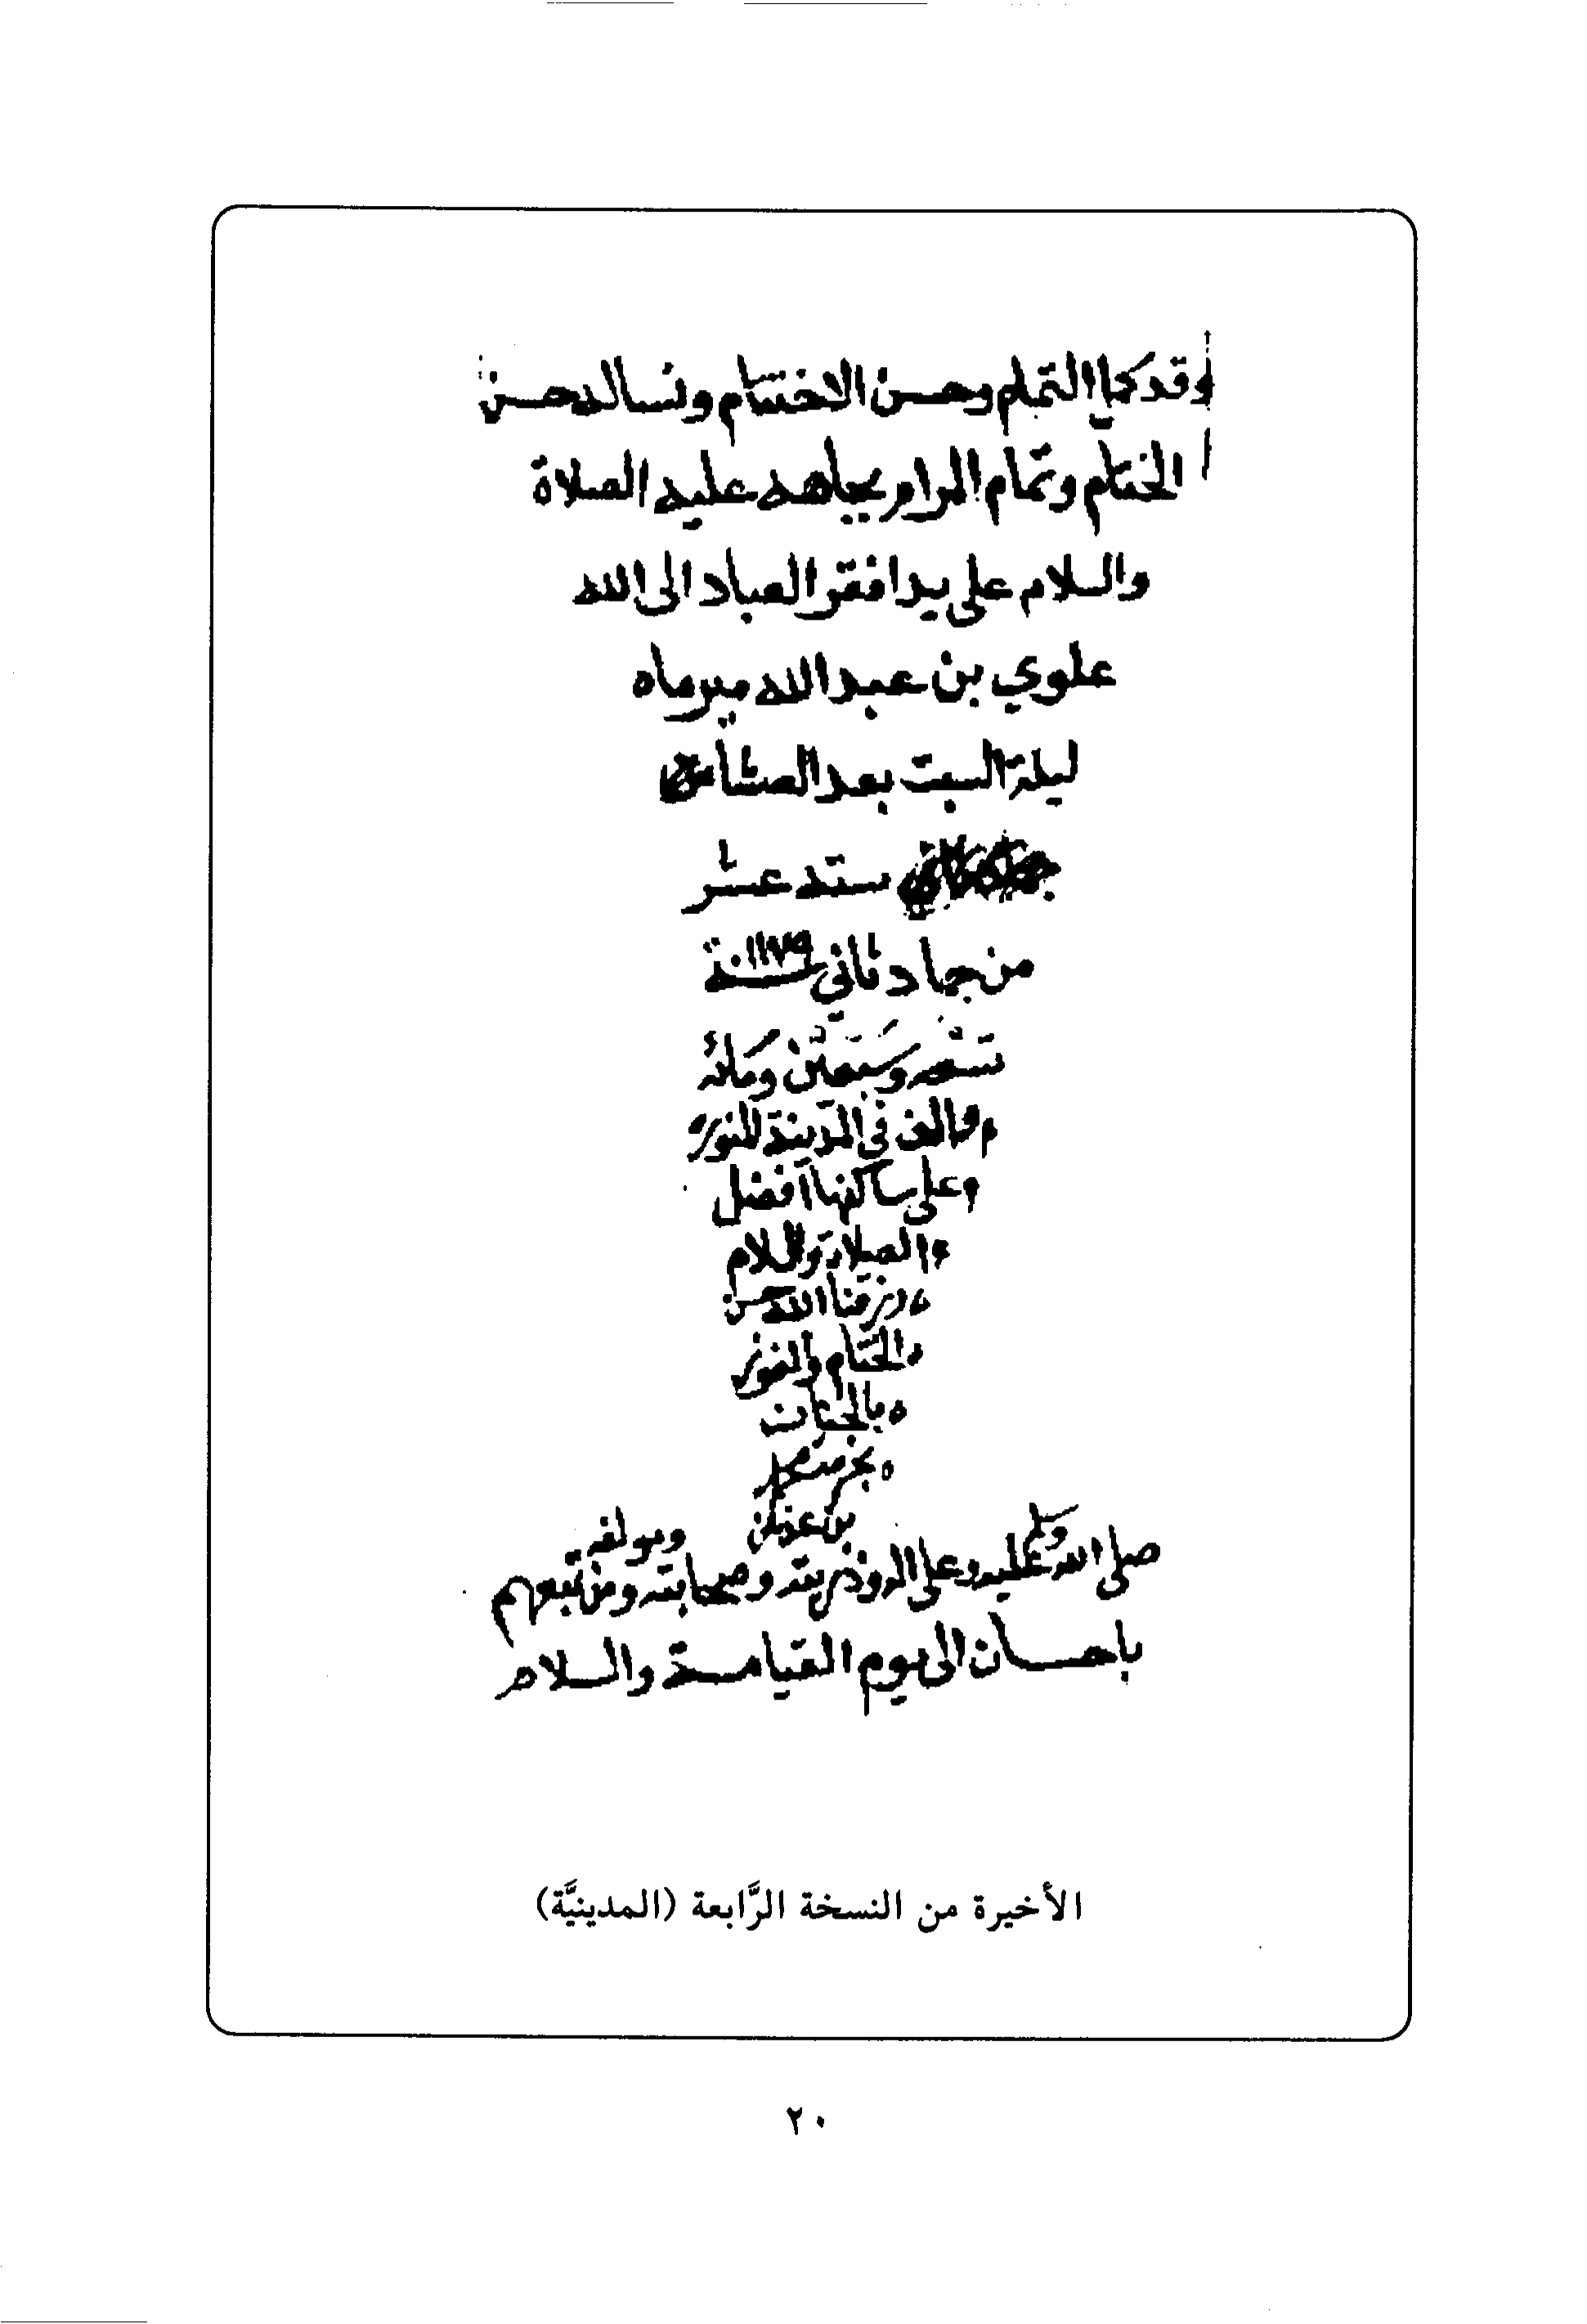 وقد كمل التمام وحسن الاختتام ونساله حسن
الختام وتمام المرام بجاهه عليه الصلاة
والسلام على يد افقر العباد الى الله
علوي بن عبد الله ميرماه
ليلة السبت بعد العشا
ستة عشر
من جماد ثاني سنة ١١٧٩
تسعه وسبعين ومائه
والف في المدينة المنوره
وعلى ساكنها افضل
الصلاة والسلام
ورزقنا الله حسن
الختام والفوز
بالجنان
بحرمة محمد
بن عدنان
صلى الله عليه وسلم وعلى اله وذريته وصحابته ومولفه ومن تبعهم
باحسان الى يوم القيامة والسلام
الأخيرة من النسخة الرَّابعة (المدينيَّة)
٢٠